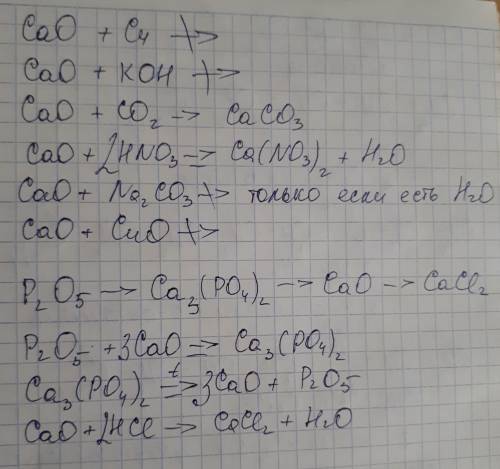 CaO + Cu ↛
CaO + KOH ↛
CaO + CO₂ → CaCO₃
CaO + 2HNO₃ → Ca(NO₃)₂ + H₂O
CaO + Na₂CO₃ ↛ только если есть H₂O
CaO + CuO ↛
P₂O₅ → Ca₃(PO₄)₂ → CaO → CaCl₂
P₂O₅ + 3CaO → Ca₃(PO₄)₂
Ca₃(PO₄)₂ t→ 3CaO + P₂O₅
CaO + 2HCl → CaCl₂ + H₂O